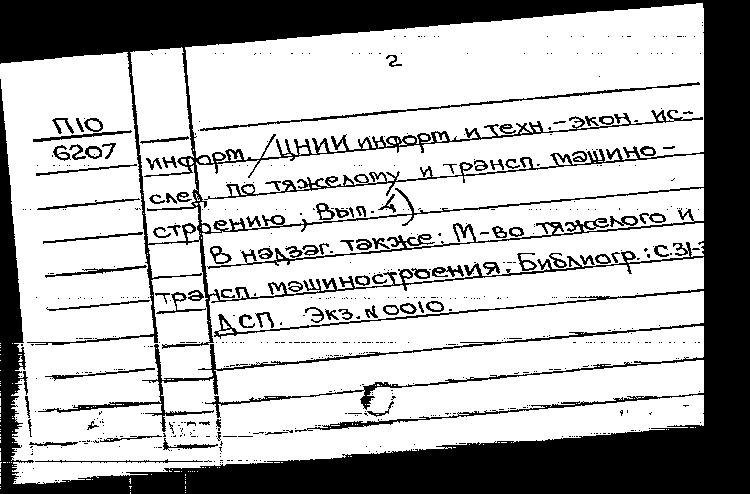 2
П10
6207
информ. / ЦНИИ информ. и техн.-экон. ис-
след. по тяжелому и трансп. машино-
строению ; Вып. 4).
В надзаг. также: М-во тяжелого и
трансп. машиностроения. Библиогр.: с.31-
ДСП. Экз. N 0010.